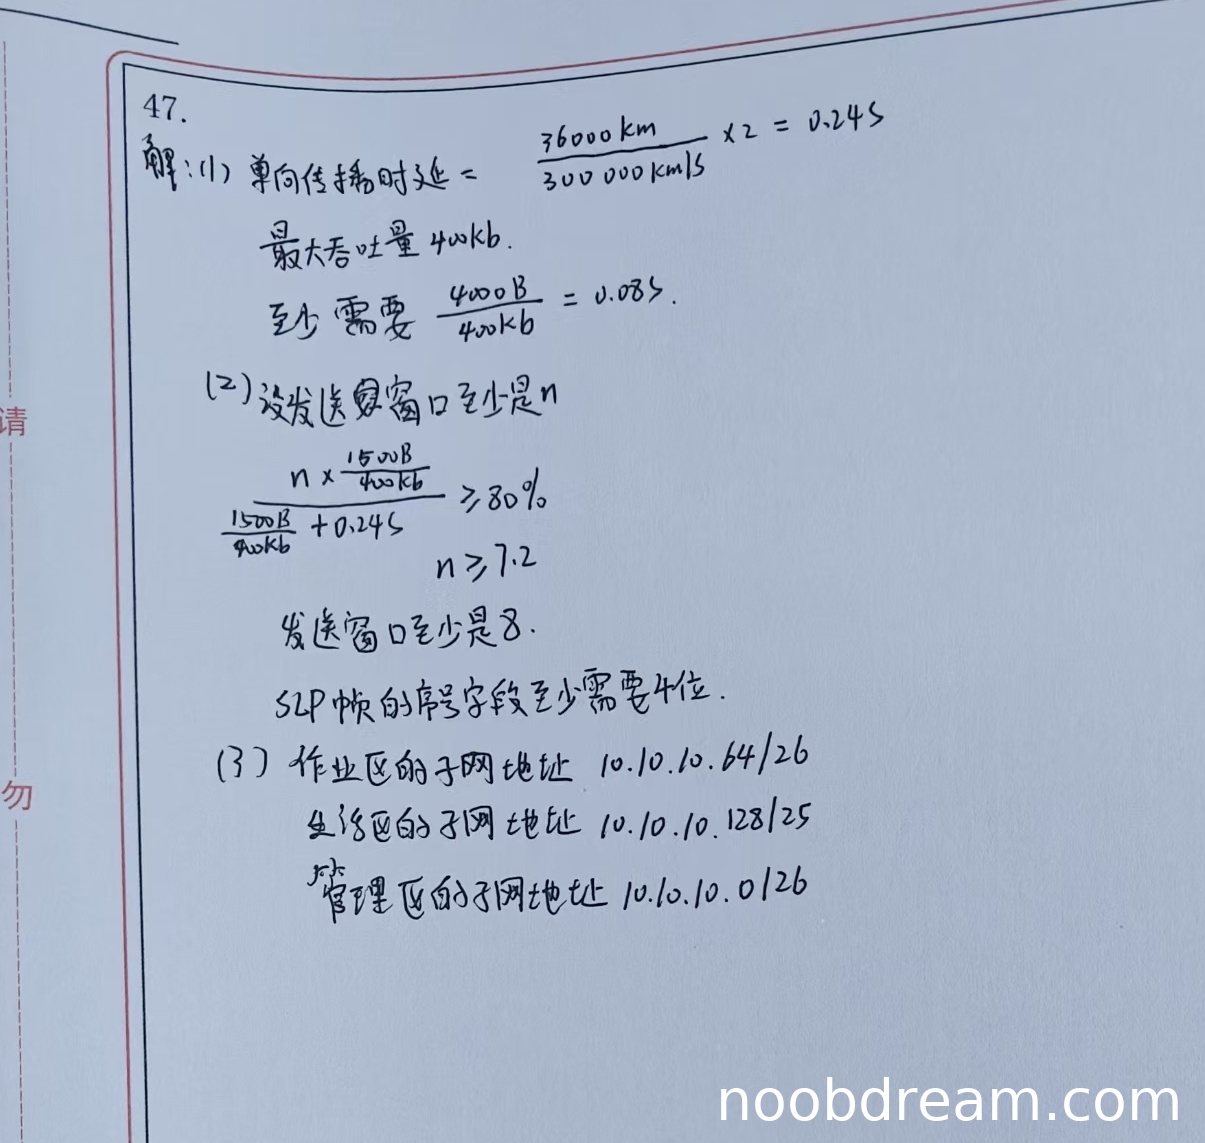 47.
解:(1) 单向传播时延 = 36000km / 300 000km/s ×2 = 0.24s
最大吞吐量 400kb.
至少需要 4000B / 400kb = 0.08s.
(2) 设发送窗口至少是n
n × 1500B / 400kb
/ 1500B / 400kb + 0.24s ≥ 80%
n ≥ 7.2
发送窗口至少是8.
SLP帧的序号字段至少需要4位.
(3) 作业区的子网地址 10.10.10.64/26
生活区的子网地址 10.10.10.128/25
管理区的子网地址 10.10.10.0/26
请
勿
noobdream.com